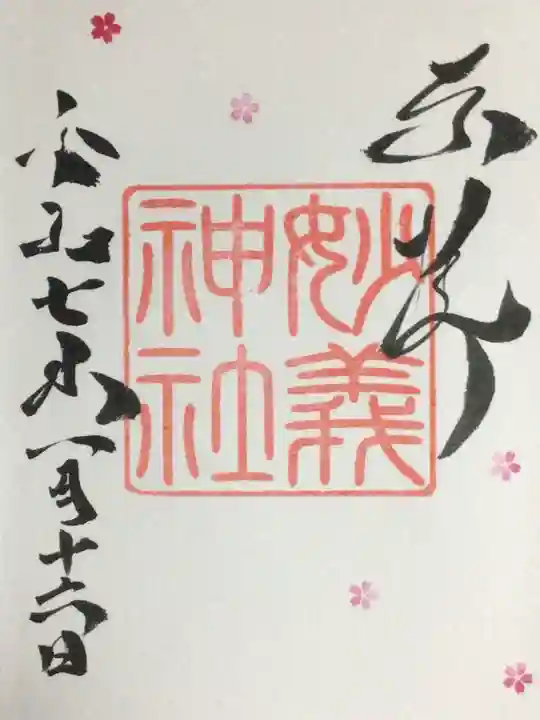 奉拝
妙義
神社
令和七年一月十六日